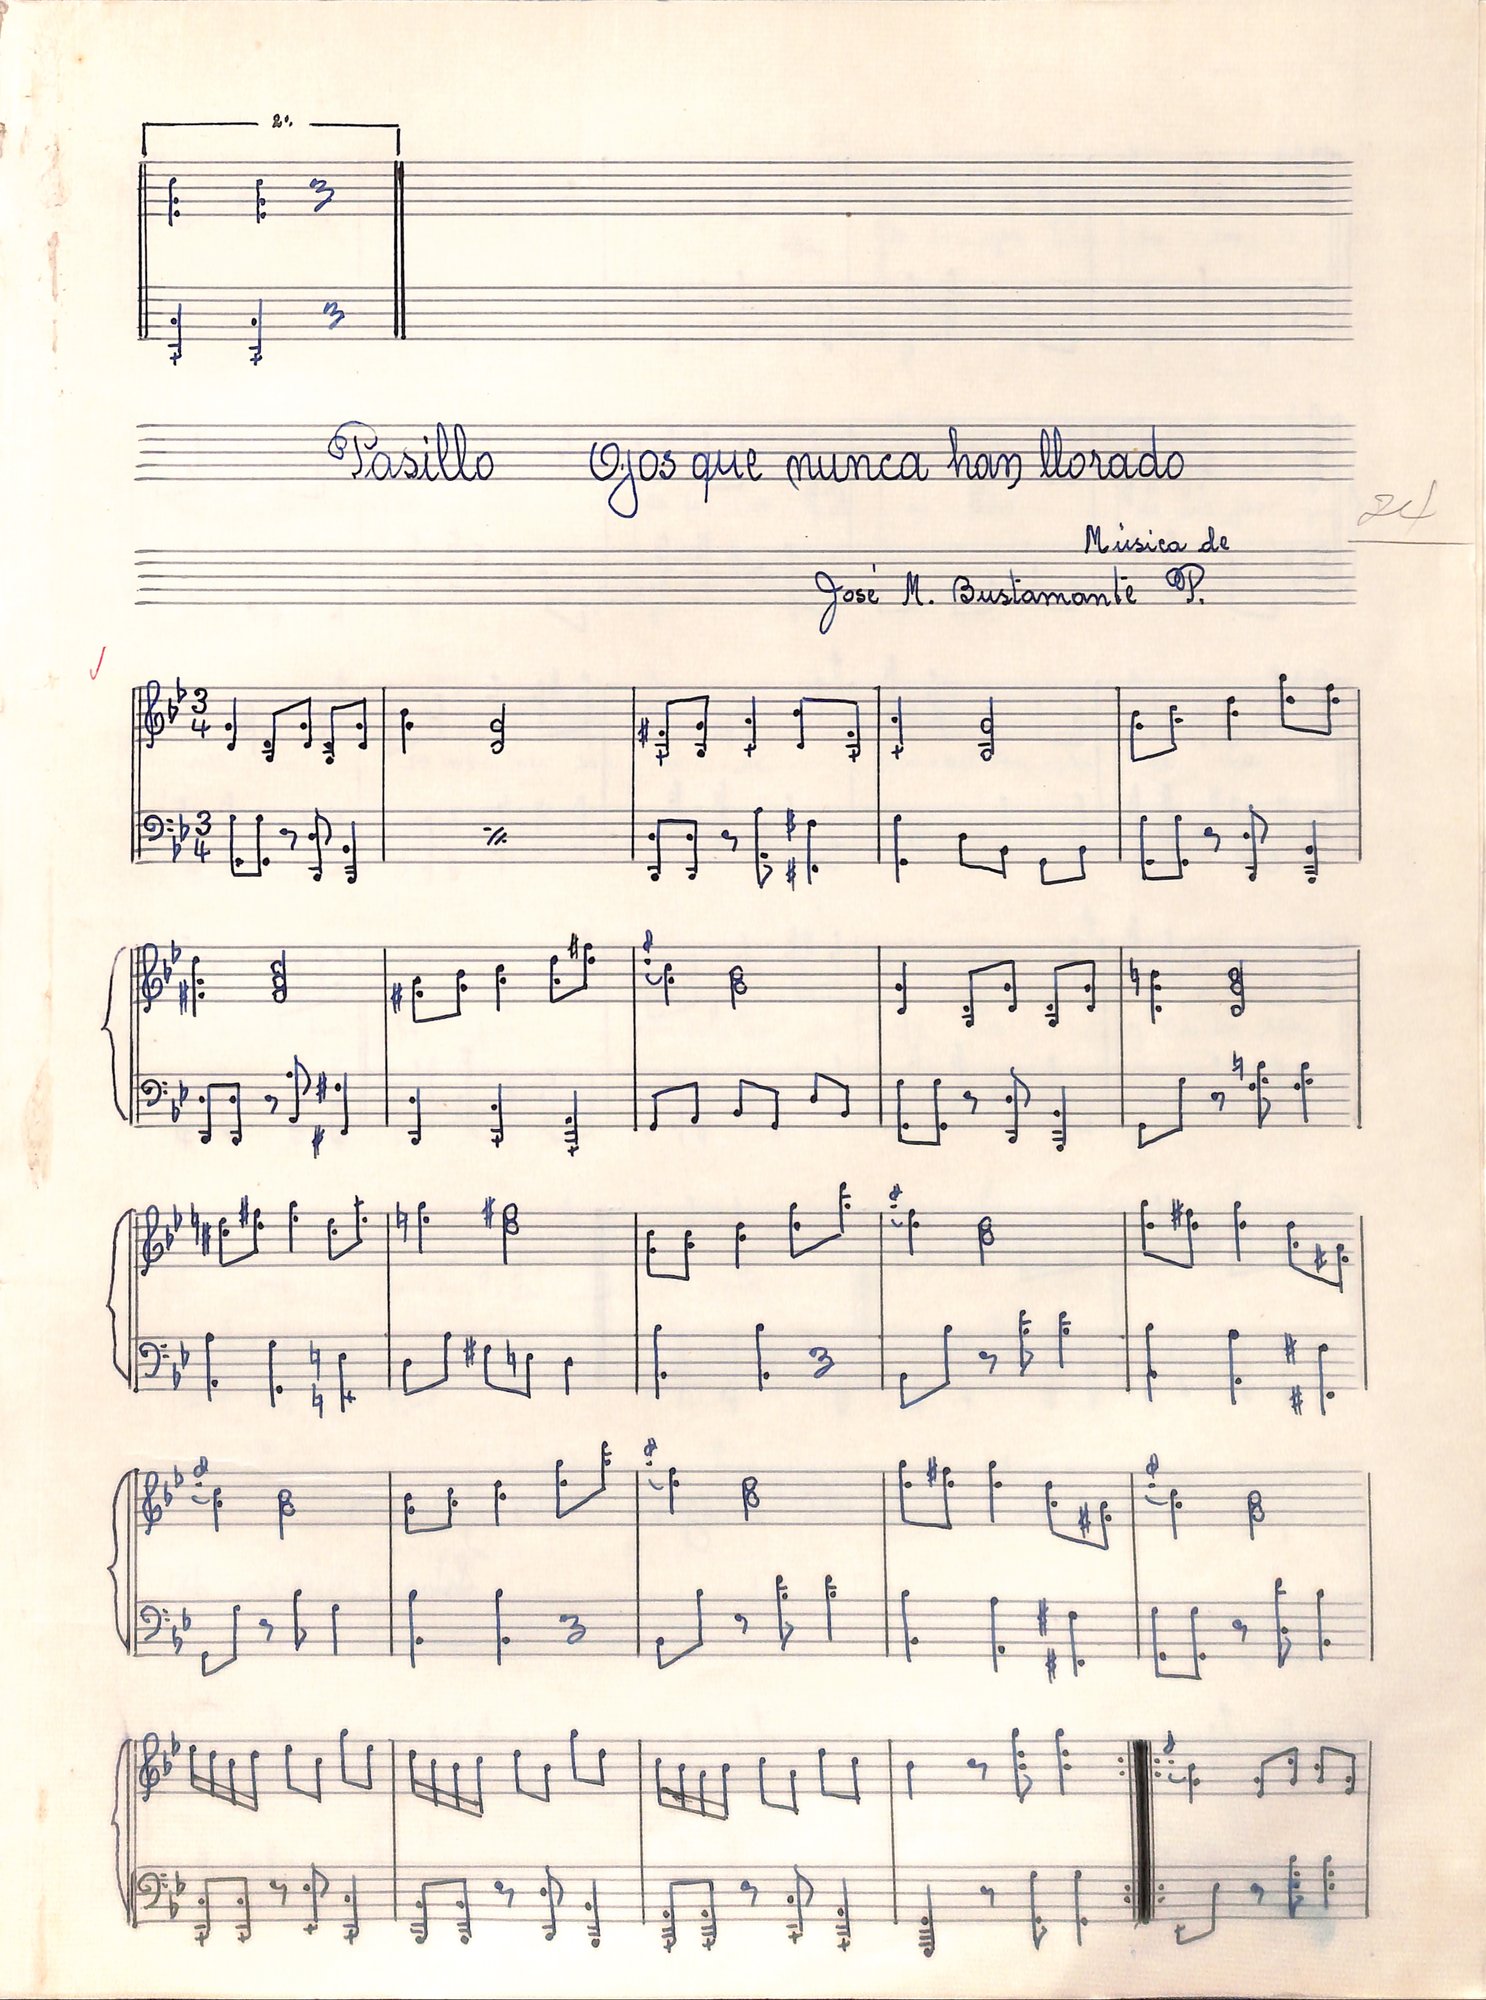 2ª.
Pasillo Ojos que nunca han llorado
24
Música de
José M. Bustamante P.
3
4
3
4